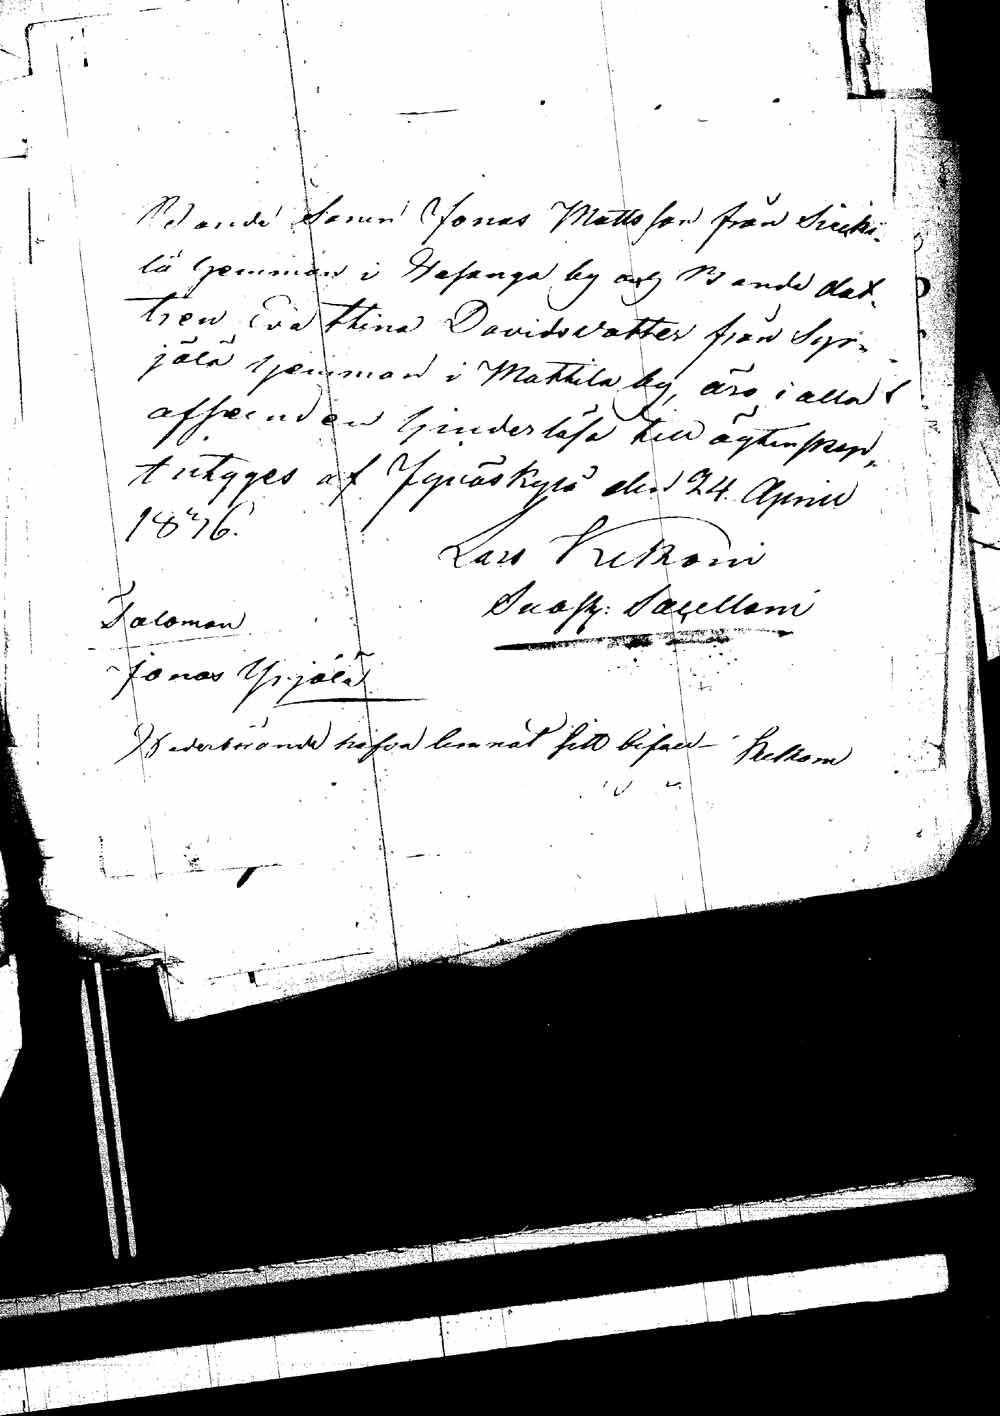 Bonde Sonen Jonas Mattsson från Sieki-
lä hemman i Hasanga by och Bonde dot-
tren Eva Stina Davidsdotter från Syr-
jälä hemman i Mattila by, äro i alla
afseenden hinderlösa till ägtenskap,
intygges af Jyväskylä den 24 April
1876.
Lars
Sacellani
Saloman
Jonas Yrjälä
Wederbörande hafva lemnat sitt bifall